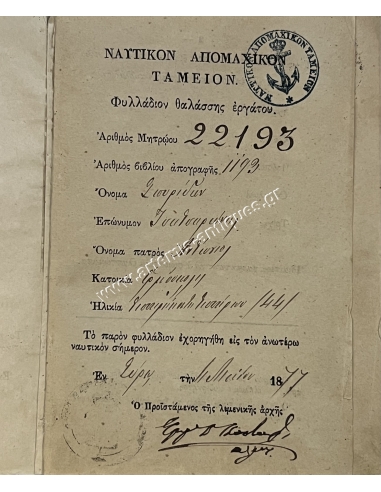 ΝΑΥΤΙΚΟΝ ΑΠΟΜΑΧΙΚΟΝ
ΤΑΜΕΙΟΝ.
ΝΑΥΤΙΚΟΝ ΑΠΟΜΑΧΙΚΟΝ ΤΑΜΕΙΟΝ
Φυλλάδιον θαλάσσης ἐργάτου.
Ἀριθμὸς Μητρῴου 22193
Ἀριθμὸς βιβλίου ἀπογραφῆς 1193
Ὄνομα Σπυρίδων
Ἐπώνυμον
Ὄνομα πατρὸς
Κατοικία
Ἡλικία /44/
Τὸ παρὸν φυλλάδιον ἐχορηγήθη εἰς τὸν ἀνωτέρω
ναυτικὸν σήμερον.
Ἐν Σύρῳ τὴν 1877
Ὁ Προϊστάμενος τῆς λιμενικῆς ἀρχῆς
www.artemisantiques.gr